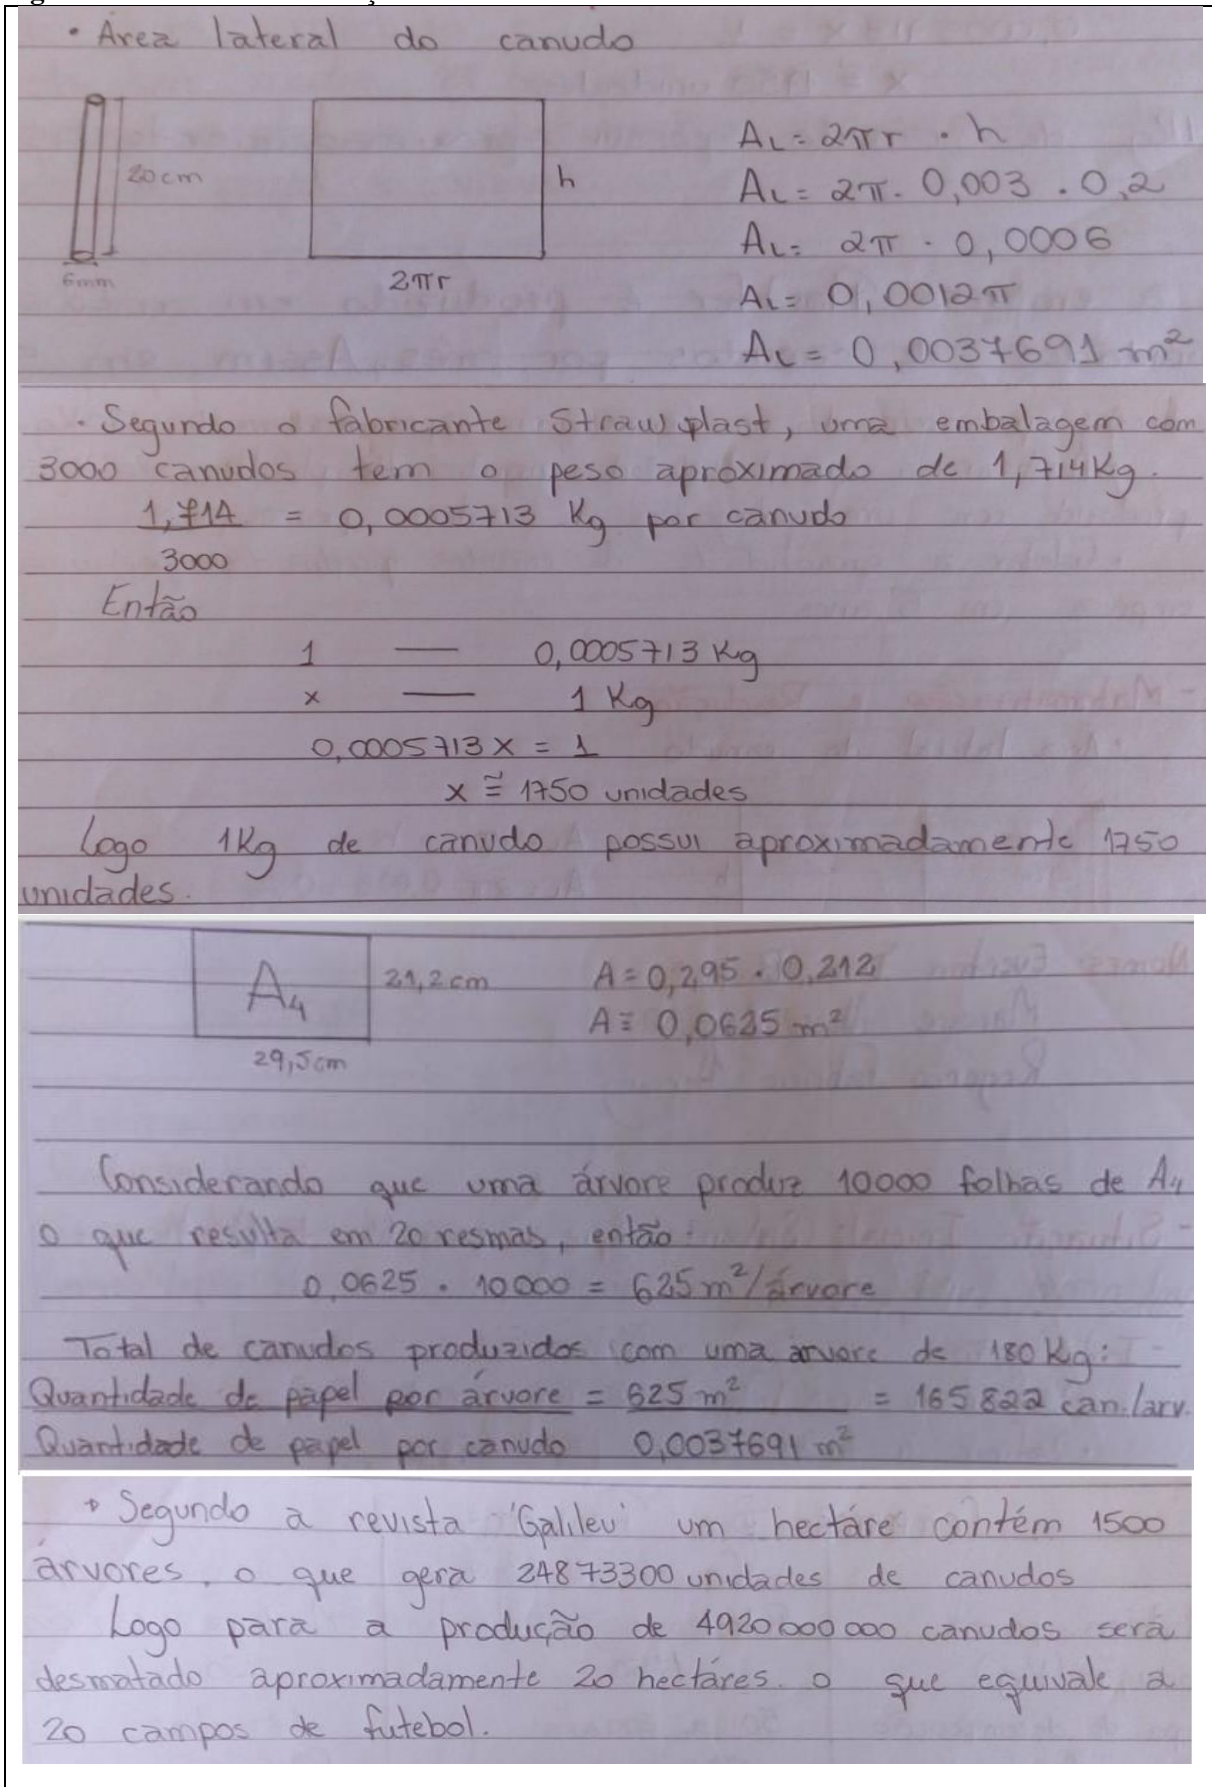 • Area lateral do canudo
20cm
6mm
h
2πr
AL = 2πr . h
AL = 2π . 0,003 . 0,2
AL = 2π . 0,0006
AL = 0,0012π
AL = 0,0037691 m²
. Segundo o fabricante Strawplast, uma embalagem com
3000 canudos tem o peso aproximado de 1,714Kg.
1,714 = 0,0005713 Kg por canudo
3000
Então
1 — 0,0005713 Kg
x — 1 Kg
0,0005713x = 1
x ≅ 1750 unidades
Logo 1Kg de canudo possui aproximadamente 1750
unidades.
A4
21,2cm
29,5cm
A = 0,295 . 0,212
A ≅ 0,0625 m²
Considerando que uma árvore produz 10000 folhas de A4
o que resulta em 20 resmas, então:
0,0625 . 10000 = 625 m²/árvore
Total de canudos produzidos com uma arvore de 180Kg:
Quantidade de papel por árvore = 625 m² = 165 822 can./arv.
Quantidade de papel por canudo 0,0037691 m²
Segundo a revista 'Galileu' um hectáre contém 1500
árvores, o que gera 24873300 unidades de canudos
Logo para a produção de 4920000000 canudos será
desmatado aproximadamente 20 hectáres. o que equivale a
20 campos de futebol.